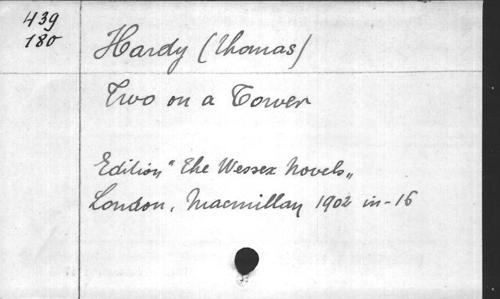 439
180
Hardy (Thomas)
Two on a Tower
Edition "The Wessex Novels„
London, Macmillan 1902 in-16